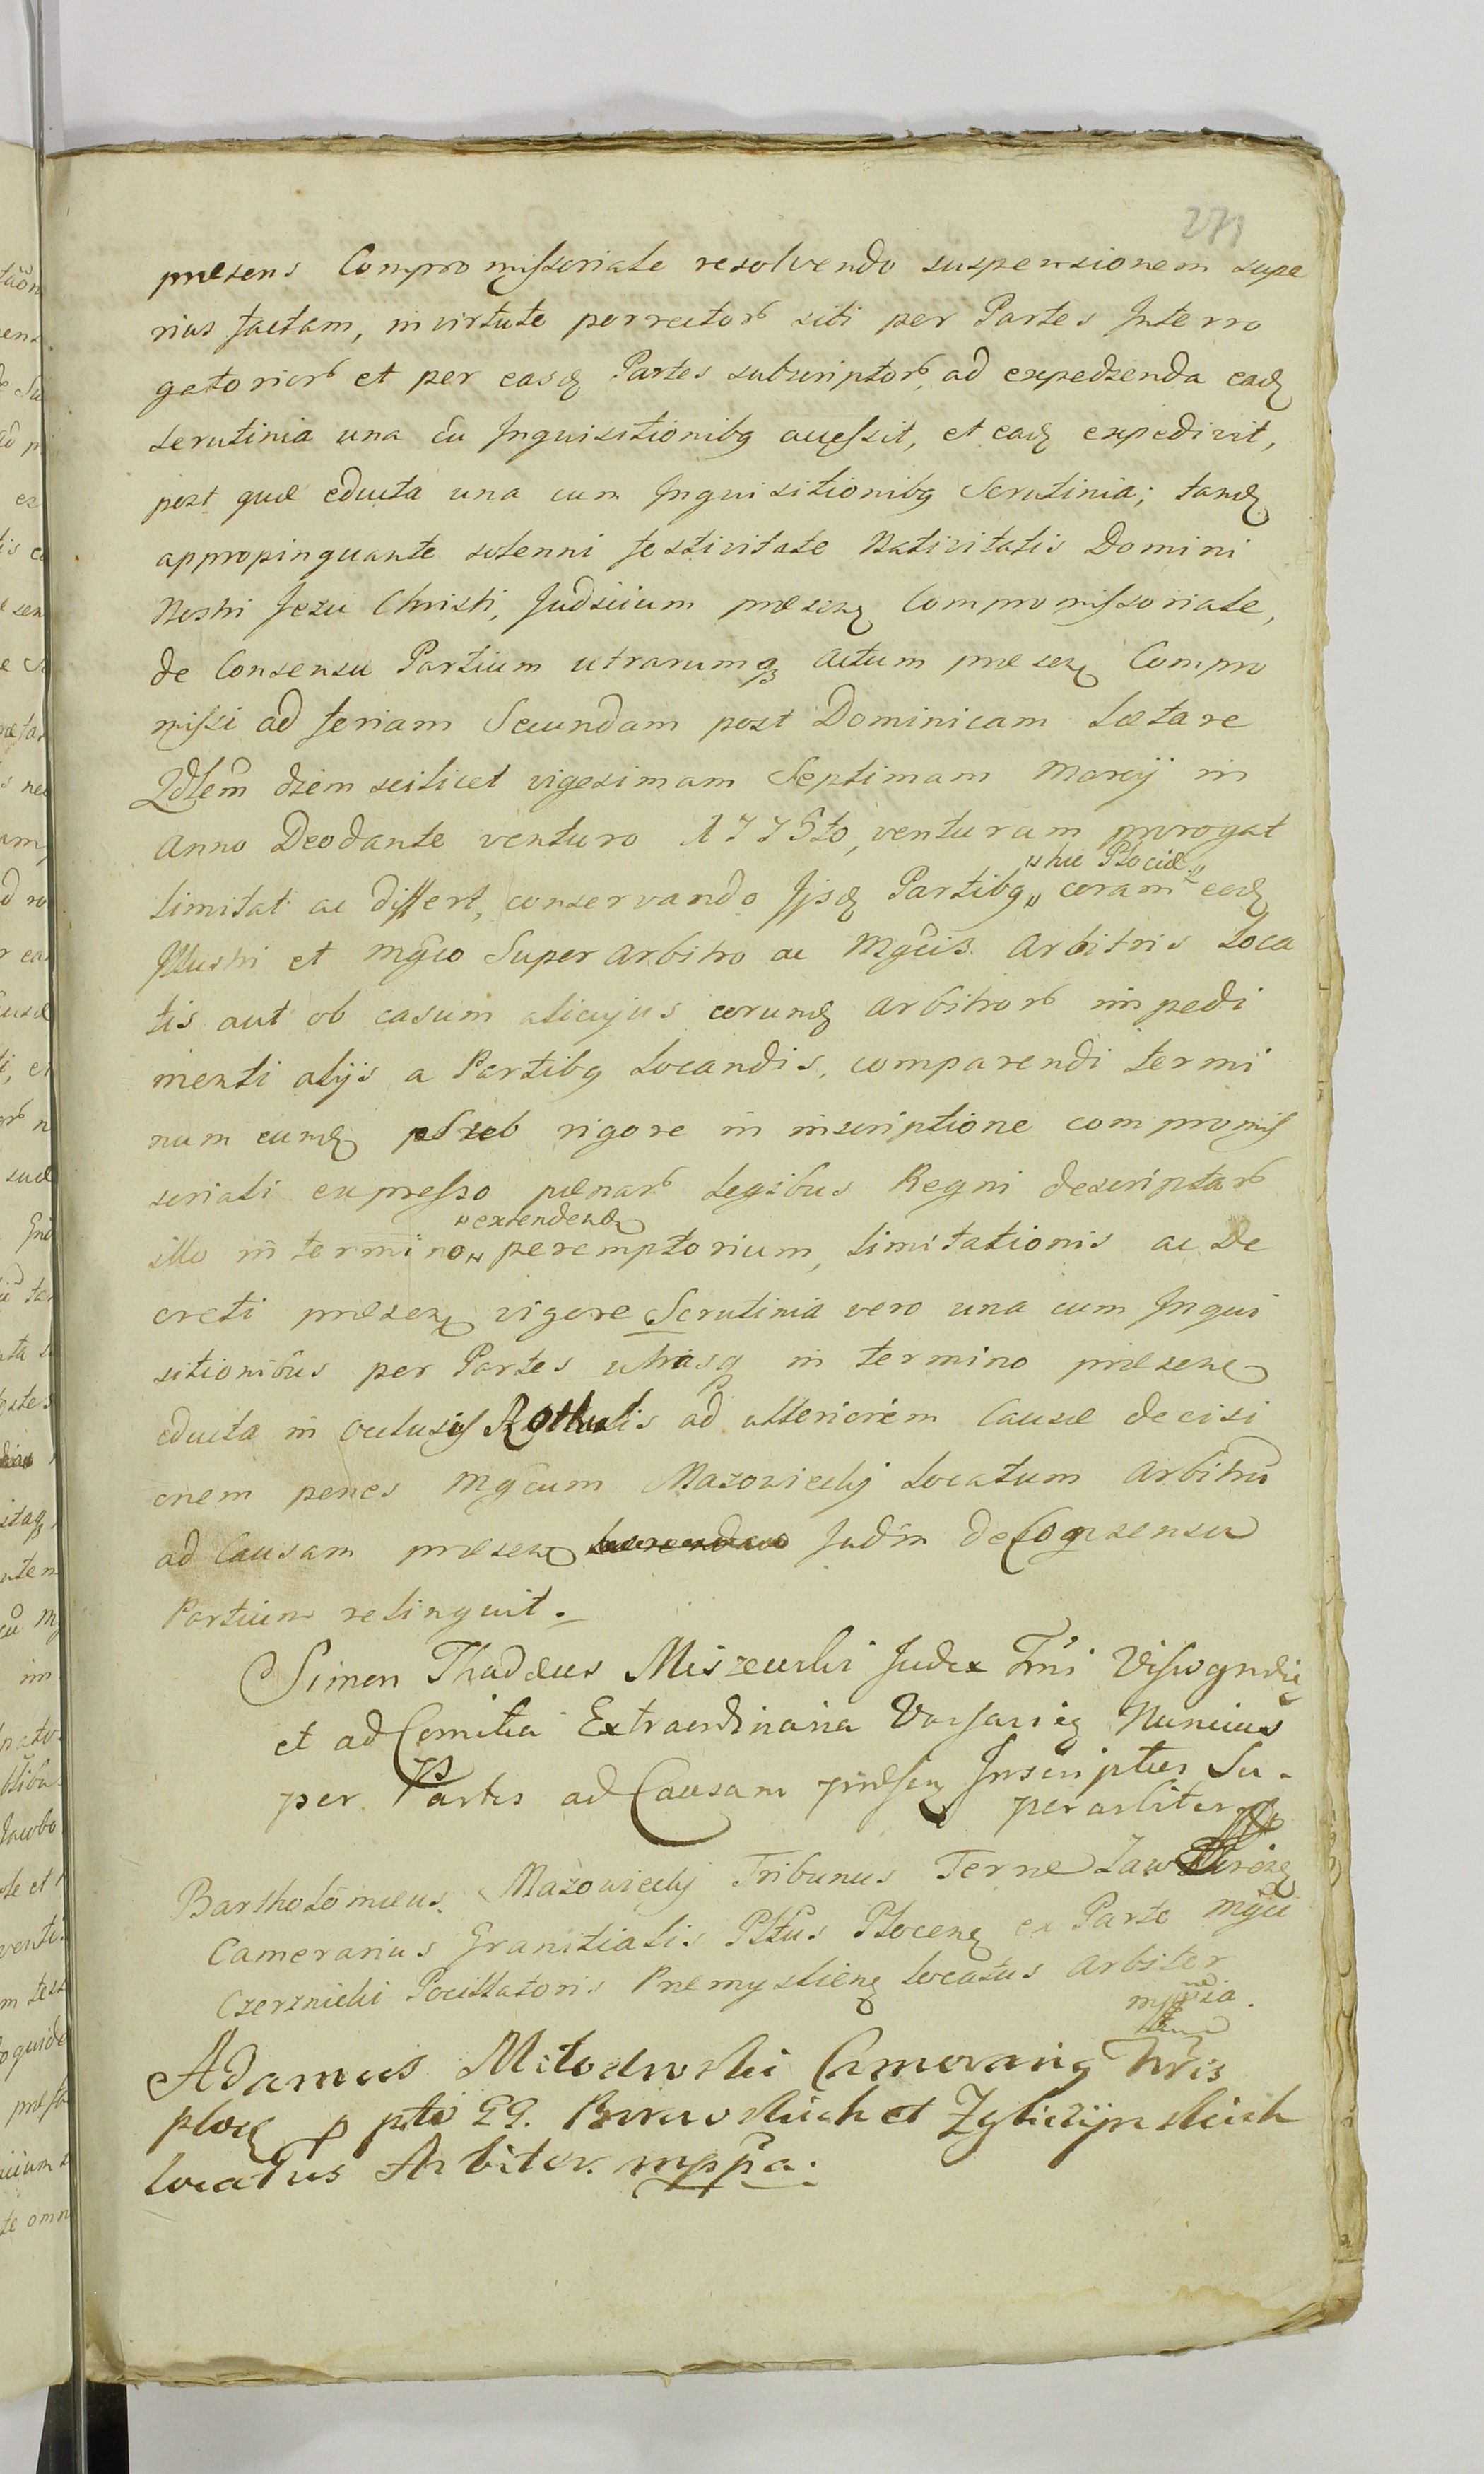 271
præsens Compromissoriale resolvendo suspensionem supe
rius factam, in virtute porrectorb sibi per Partes Interro
gatoriorb et per easq Partes subscriptorb, ad expedienda eadq
scrutinia una cũ Inquisitionibq accessit, et eadq expedivit,
post quæ educta una cum Inquisitionibq Scrutinia; tandq
appropinquante solenni festivitate Nativitatis Domini
Nostri Jesu Christi, Judicium præsenq Compromissoriale,
de Consensu Partium utrarumq actum præsenq Compro
missi ad feriam Secundam post Dominicam Lætare
Qdlem diem scilicet vigesimam Septimam Marcij in
Anno Deo dante venturo 1775to, venturam prorogat
limitat ac differt, conservando Ijsdq Partibq „ coram eodq
„ hic Plociæ „
Illustri et Mgco Super Arbitro ac Mgcis Arbitris Loca
tis aut ob casum alicujus eorundq arbitrorb impedi
menti alijs a Partibq locandis, comparendi termi
num eundq sub rigore in inscriptione compromis
soriali expresso pænarb Legibus Regni descriptarb
„ extendendq
illo in termino „ peremptorium, limitationis ac De
creti præsenq vigore Scrutinia vero una cum Inqui
sitionibus per Partes utrasq in termino præsenq
educta in oclusis Rothulis ad ulteriorem Causæ decisi
onem penes Mgcum Mazowiecky Locatum Arbitrũ
ad Causam præsenq Judm de Consensu
Partium relinquit.
Simon Thadæus Miszewski Judex Trris Vissogrdię
et ad Comitia Extraordinaria Varsavięq Nuncius
per Partes ad Causam præsenq Inscriptus Su-
perarbiter
Bartholomæus Mazowiecky Tribunus Terræ Zawkrzenq
Camerarius Granitialis Pltus Plocenq ex Parte Mgci
Czerznicki Pocillatoris Præmyslienq locatus Arbiter
mppia.
Adamus Mĩtodrowski Camerariq Trris
plocq p pte GG. Borowskich et Zgliczynskich
locatus Arbiter. mppa.